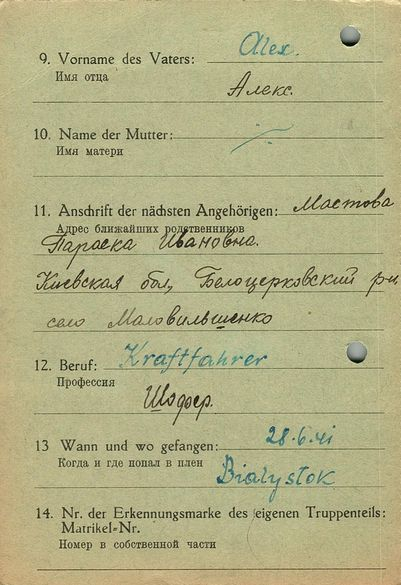 9. Vorname des Vaters: Alex.
Имя отца
Алекс.
10. Name der Mutter:
Имя матери
11. Anschrift der nächsten Angehörigen: Мастова
Адрес ближайших родственников
Параска Ивановна.
Киевская обл, Белоцерковский р-н
село Маловильшенко
12. Beruf: Kraftfahrer
Профессия
Шофер.
13 Wann und wo gefangen: 28.6.41
Когда и где попал в плен
Białystok
14. Nr. der Erkennungsmarke des eigenen Truppenteils:
Matrikel-Nr.
Номер в собственной части